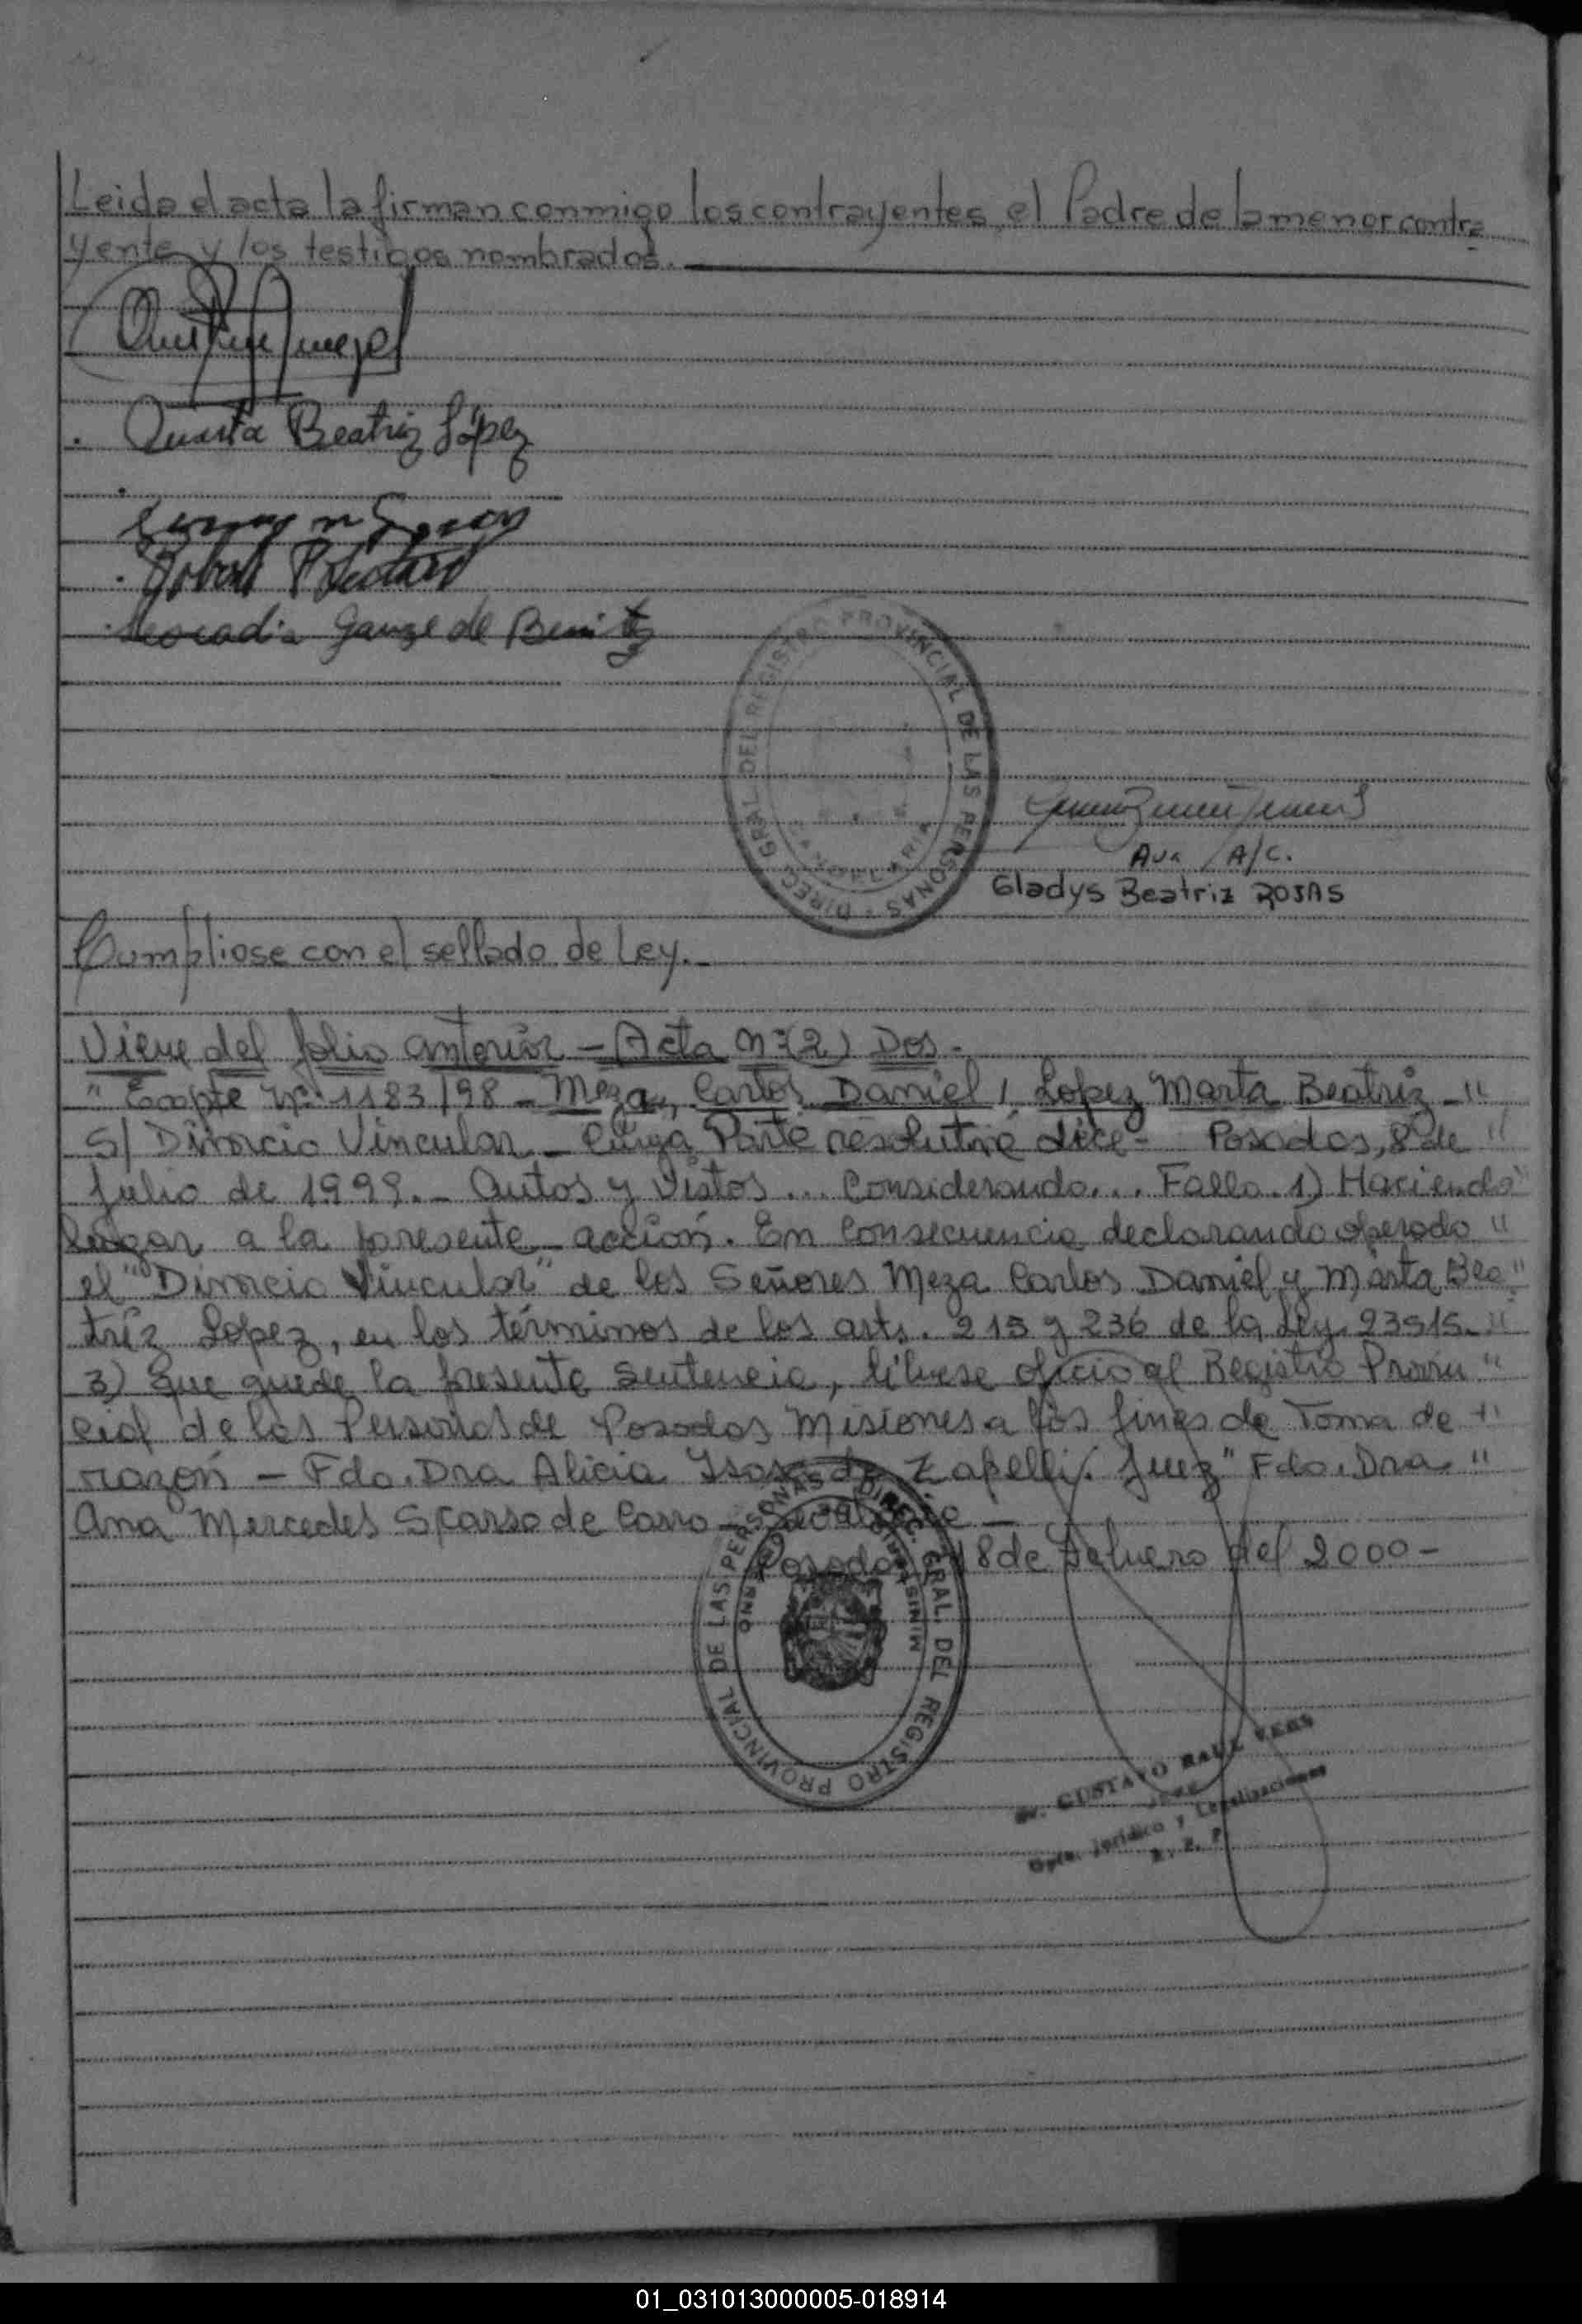 Leida el acta la firman conmigo los contrayentes, el Padre de la menor contra
yente y los testigos nombrados.
Marta Beatriz López
Leocadia Gauze de Benitez
DIREC. GRAL. DEL REGISTRO PROVINCIAL DE LAS PERSONAS
A/C.
Gladys Beatriz ROJAS
Cumpliose con el sellado de Ley.-
Viene del folio anterior - Acta Nº (2) Dos.-
"Expte Nº 1183/98 - Meza, Carlos Daniel / Lopez Marta Beatriz - "
S/ Divorcio Vincular - Cuya Parte resolutiva dice - Posadas, 8 de "
julio de 1999.- Autos y Vistos... Considerando... Fallo. 1) Haciendo "
lugar a la presente acción. En consecuencia declarando operado "
el "Divorcio Vincular" de los Señores Meza Carlos Daniel y Marta Bea "
tríz Lopez, en los términos de los arts. 215 y 236 de la Ley 23515.- "
3) Que quede la presente sentencia, líbrese oficio al Registro Provin "
cial de las Personas de Posadas Misiones a los fines de Toma de "
razón - Fdo. Dra Alicia Isasa de Zapelli. Juez" Fdo. Dra. "
Ana Mercedes Scarso de Casro - Secretaria -
Posadas, 18 de Febrero del 2000 -
DIREC. GRAL. DEL REGISTRO PROVINCIAL DE LAS PERSONAS
Dr. GUSTAVO RAUL VERS
JEFE
Dpto. Jurídico y Legalizaciones
R. P. P.
01_031013000005-018914